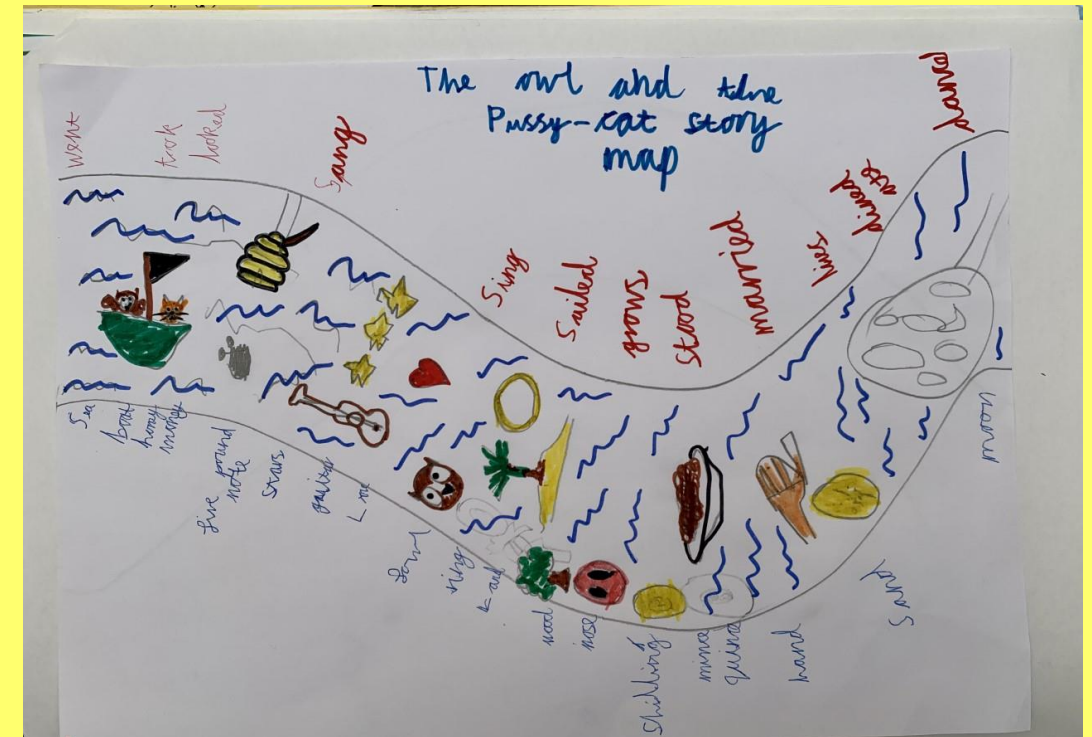 The owl and the
Pussy-cat story
map
went
took
looked
Sang
Sing
Sailed
grows
stood
married
lives
dined
ate
danced
Sea
boat
honey
money
five pound
note
stars
guitar
fowl
ring
land
wood
nose
Shilling
mince
quince
hand
Sand
moon